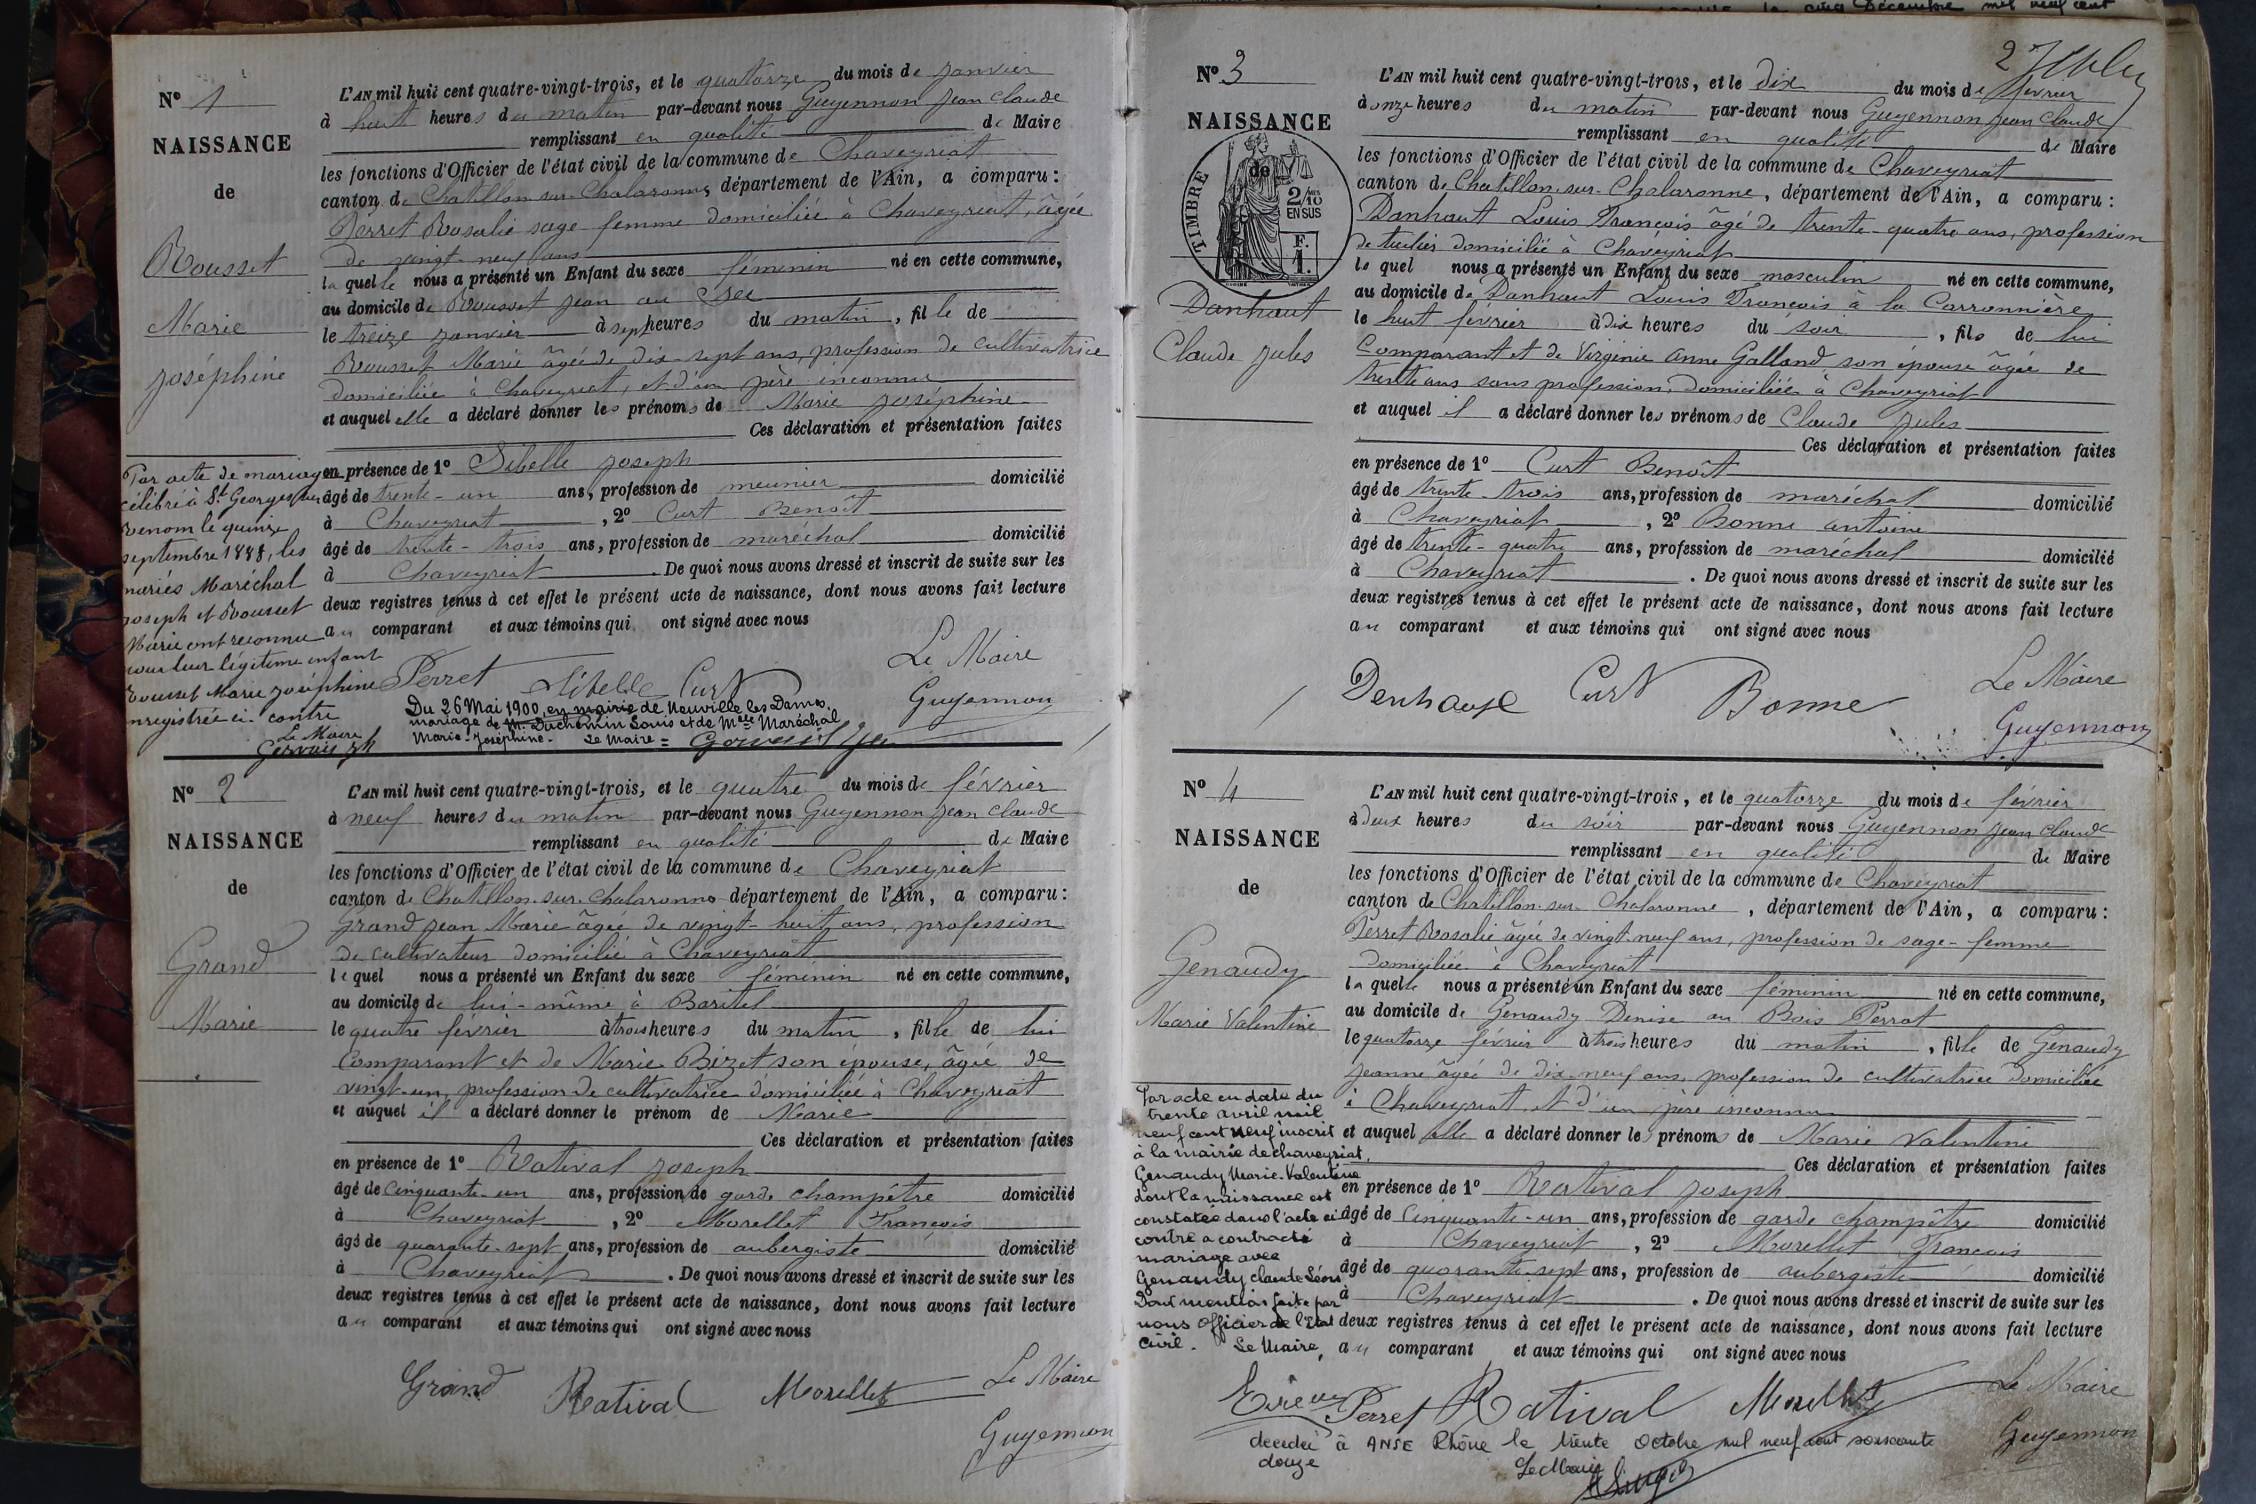 cinq Décembre mil neuf cent
N° 1
NAISSANCE
de
Rousset
Marie
Joséphine
L'AN mil huit cent quatre-vingt-trois, et le quatorze du mois de janvier
à huit heures du matin par-devant nous Guyennon Jean Claude
remplissant en qualité de Maire
les fonctions d'Officier de l'état civil de la commune de Chaveyriat
canton de Chatillon-sur-Chalaronne, département de l'Ain, a comparu :
Perret Rosalie sage-femme domiciliée à Chaveyriat, âgée
de vingt neuf ans
laquelle nous a présenté un Enfant du sexe féminin né en cette commune,
au domicile de Rousset Jean au
le treize janvier à sept heures du matin, fille de
Rousset Marie âgée de dix-sept ans, profession de cultivatrice
domiciliée à Chaveyriat, et d'un père inconnu
et auquel elle a déclaré donner les prénoms de Marie Joséphine
Ces déclaration et présentation faites
en présence de 1° Sibelle Joseph
âgé de trente-un ans, profession de meunier domicilié
à Chaveyriat, 2° Curt Benoît
âgé de trente-trois ans, profession de maréchal domicilié
à Chaveyriat. De quoi nous avons dressé et inscrit de suite sur les
deux registres tenus à cet effet le présent acte de naissance, dont nous avons fait lecture
au comparant et aux témoins qui ont signé avec nous
Le Maire
Perret Sibelle Curt Guyennon
Par acte de mariage
célébré à St Georges sur
Renom le quinze
septembre 1888, les
mariés Maréchal
Joseph et Rousset
Marie ont reconnu
pour leur légitime enfant
Rousset Marie Joséphine
enregistrée ci-contre
Le Maire
Gervais
Du 26 Mai 1900, en mairie de Neuville les Dames,
mariage de Mr. Duchemin Louis et de Melle Maréchal
Marie-Joséphine. Le Maire = Gervais
N° 2
NAISSANCE
de
Grand
Marie
L'AN mil huit cent quatre-vingt-trois, et le quatre du mois de février
à neuf heures du matin par-devant nous Guyennon Jean Claude
remplissant en qualité de Maire
les fonctions d'Officier de l'état civil de la commune de Chaveyriat
canton de Chatillon-sur-Chalaronne département de l'Ain, a comparu :
Grand Jean Marie âgé de vingt-huit ans, profession
de cultivateur domicilié à Chaveyriat
lequel nous a présenté un Enfant du sexe féminin né en cette commune,
au domicile de lui-même à Baritel
le quatre février à trois heures du matin, fille de lui
Comparant et de Marie Bizet son épouse, âgée de
vingt-un, profession de cultivatrice domiciliée à Chaveyriat
et auquel il a déclaré donner le prénom de Marie
Ces déclaration et présentation faites
en présence de 1° Rativat Joseph
âgé de cinquante-un ans, profession de garde champêtre domicilié
à Chaveyriat, 2° Morellet François
âgé de quarante-sept ans, profession de aubergiste domicilié
à Chaveyriat. De quoi nous avons dressé et inscrit de suite sur les
deux registres tenus à cet effet le présent acte de naissance, dont nous avons fait lecture
au comparant et aux témoins qui ont signé avec nous
Le Maire
Grand Rativat Morellet
Guyennon
2
N° 3
NAISSANCE
de
TIMBRE
2/10
EN SUS
F.
1.
Danhaut
Claude Jules
L'AN mil huit cent quatre-vingt-trois, et le dix du mois de février
à onze heures du matin par-devant nous Guyennon Jean Claude
remplissant en qualité de Maire
les fonctions d'Officier de l'état civil de la commune de Chaveyriat
canton de Chatillon-sur-Chalaronne, département de l'Ain, a comparu :
Danhaut Louis François âgé de trente-quatre ans, profession
de tuilier domicilié à Chaveyriat
lequel nous a présenté un Enfant du sexe masculin né en cette commune,
au domicile de Danhaut Louis François à la Carronnière
le huit février à dix heures du soir, fils de lui
Comparant et de Virginie Anne Galland son épouse âgée de
trente ans sans profession, domiciliée à Chaveyriat
et auquel il a déclaré donner les prénoms de Claude Jules
Ces déclaration et présentation faites
en présence de 1° Curt Benoît
âgé de trente-trois ans, profession de maréchal domicilié
à Chaveyriat, 2° Bonne Antoine
âgé de trente-quatre ans, profession de maréchal domicilié
à Chaveyriat. De quoi nous avons dressé et inscrit de suite sur les
deux registres tenus à cet effet le présent acte de naissance, dont nous avons fait lecture
au comparant et aux témoins qui ont signé avec nous
Le Maire
Curt Bonne
Guyennon
N° 4
NAISSANCE
de
Genaudy
Marie Valentine
L'AN mil huit cent quatre-vingt-trois, et le quatorze du mois de février
à deux heures du soir par-devant nous Guyennon Jean Claude
remplissant en qualité de Maire
les fonctions d'Officier de l'état civil de la commune de Chaveyriat
canton de Chatillon-sur-Chalaronne, département de l'Ain, a comparu :
Perret Rosalie âgée de vingt-neuf ans, profession de sage-femme
domiciliée à Chaveyriat
laquelle nous a présenté un Enfant du sexe féminin né en cette commune,
au domicile de Genaudy Denise au Bois Perrat
le quatorze février à trois heures du matin, fille de Genaudy
Jeanne âgée de dix-neuf ans, profession de cultivatrice domiciliée
à Chaveyriat et d'un père inconnu
et auquel elle a déclaré donner les prénoms de Marie Valentine
Ces déclaration et présentation faites
en présence de 1° Rativat Joseph
âgé de cinquante-un ans, profession de garde champêtre domicilié
à Chaveyriat, 2° Morellet François
âgé de quarante-sept ans, profession de aubergiste domicilié
à Chaveyriat. De quoi nous avons dressé et inscrit de suite sur les
deux registres tenus à cet effet le présent acte de naissance, dont nous avons fait lecture
au comparant et aux témoins qui ont signé avec nous
Par acte en date du
trente avril mil
neuf cent neuf inscrit
à la mairie de chaveyriat,
Genaudy Marie-Valentine
dont la naissance est
constatée dans l'acte ci-
contre a contracté
mariage avec
Genaudy Claude Léon
Dont mention faite par
nous Officier de l'Etat
civil. Le Maire,
Le Maire
Perret Rativat Morellet
Guyennon
décédée à ANSE Rhône le trente Octobre mil neuf cent soixante
douze
Le Maire